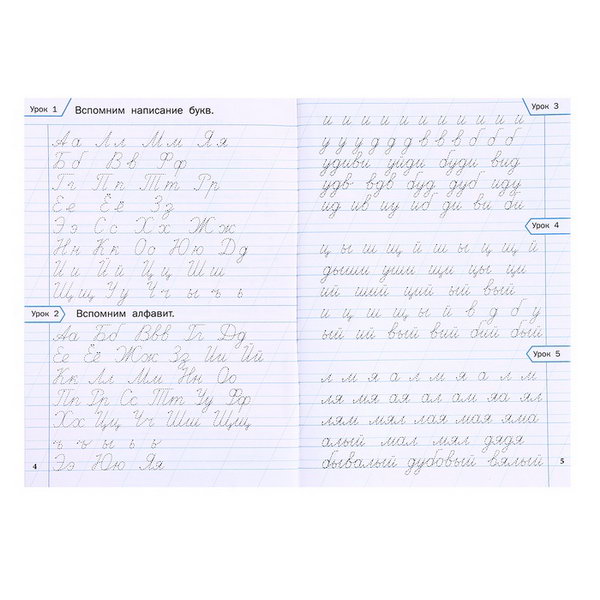 Урок 1
Вспомним написание букв.
Аа Лл Мм Яя
Бб Вв Фф
Гг Пп Тт Рр
Ее Ёё Зз
Ээ Сс Хх Жж
Нн Кк Оо Юю Дд
Ии Йй Цц Шш
Щщ Уу Чч ы ъ ь
Урок 2
Вспомним алфавит.
Аа Бб Вв Гг Дд
Ее Ёё Жж Зз Ии Йй
Кк Лл Мм Нн Оо
Пп Рр Сс Тт Уу Фф
Хх Цц Чч Шш Щщ
ъ ъ ы ь ь
Ээ Юю Яя
4
Урок 3
и и и и и и и и и и и
у у у д д д в в в б б б
удиви уйди буди вид
удв вдв буд дуб иду
ид ив иу иб ди ви би
Урок 4
ц ы ш щ й ш ы ц щ й
дыши уши щи цы ци
ий ший щий ый вый
и ц ш щ ы й в д б у
ый ий вый вий бий бый
Урок 5
л м я а л м я а л м
ля мя ая ал ам яа ял
лям мял лая мая яма
алый мал мял дядя
бывалый дубовый вялый
5